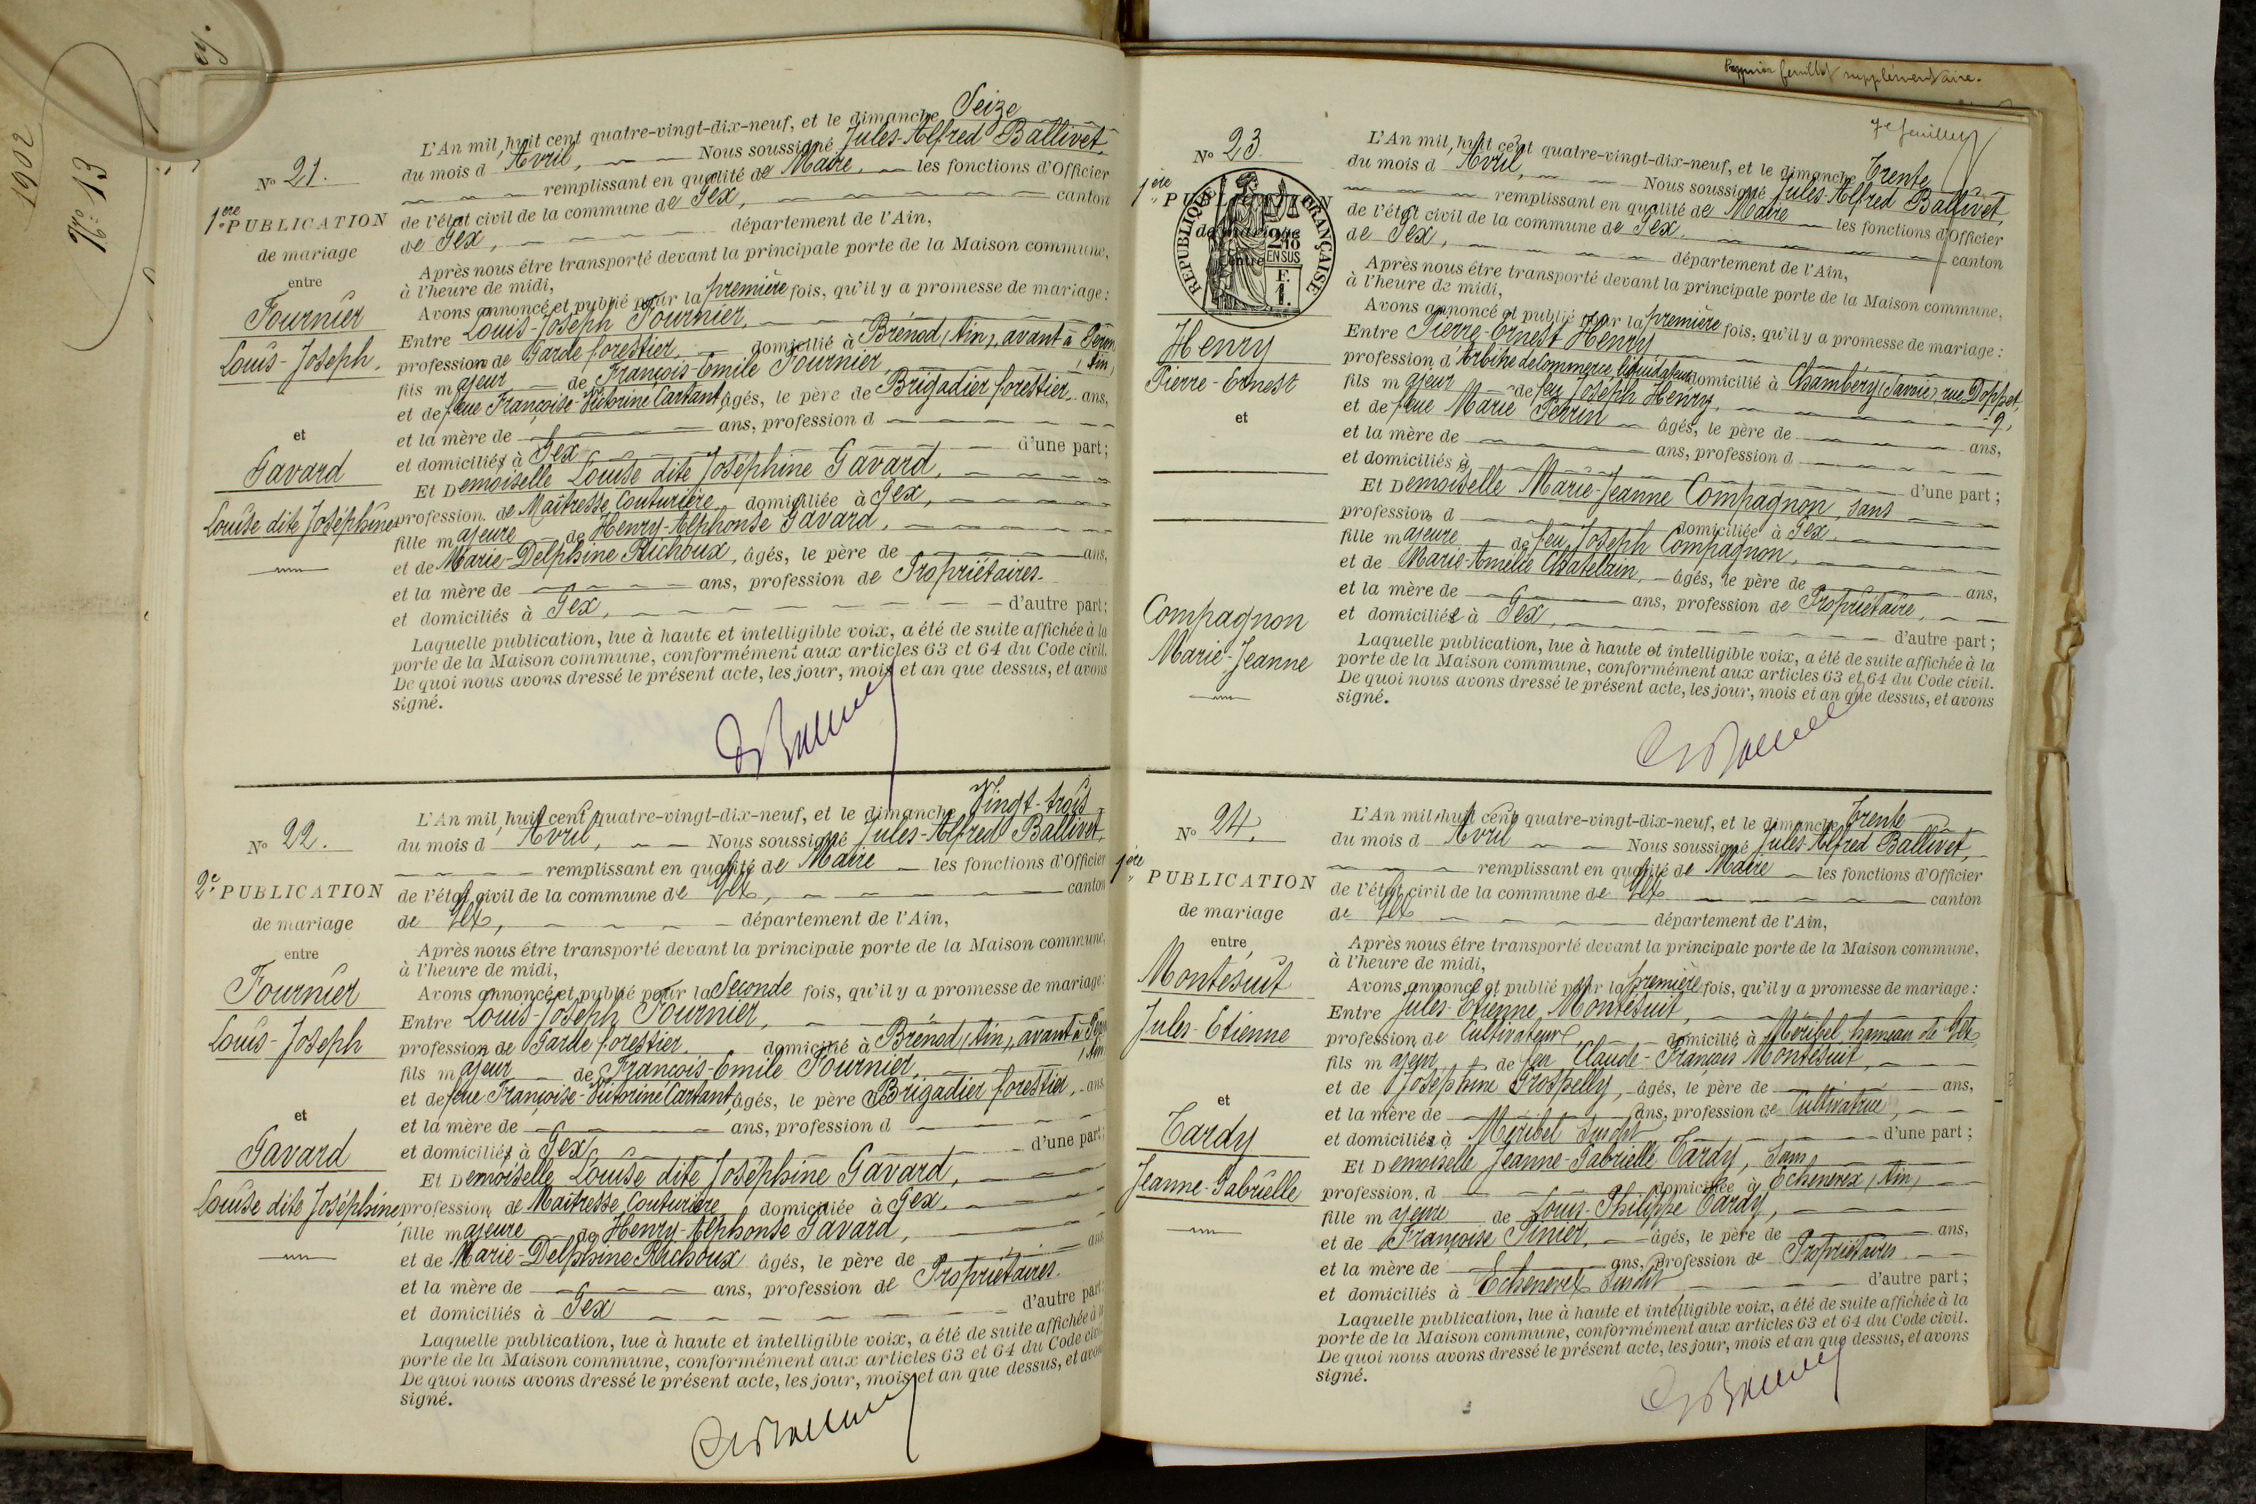 1902
No: 13
No 21.
1ère PUBLICATION
de mariage
entre
Fournier
Louis-Joseph.
et
Gavard
Louise dite Joséphine
L'An mil huit cent quatre-vingt-dix-neuf, et le dimanche Seize
du mois d'Avril, Nous soussigné Jules-Alfred Ballivet,
remplissant en qualité de Maire, les fonctions d'Officier
de l'état civil de la commune de Gex, canton
de Gex, département de l'Ain,
Après nous être transporté devant la principale porte de la Maison commune,
à l'heure de midi,
Avons annoncé et publié pour la première fois, qu'il y a promesse de mariage :
Entre Louis-Joseph Fournier,
profession de Garde forestier, domicilié à Brénod (Ain), avant à
(Ain)
fils majeur de François-Emile Fournier,
et de feue Françoise-Victorine Cartant, âgés, le père de Brigadier forestier, ans,
et la mère de ans, profession d
et domiciliés à Gex d'une part ;
Et Demoiselle Louise dite Joséphine Gavard,
profession de Maîtresse Couturière domiciliée à Gex,
fille majeure de Henry-Alphonse Gavard,
et de Marie-Delphine Richoux, âgés, le père de ans,
et la mère de ans, profession de Propriétaires.
et domiciliés à Gex, d'autre part ;
Laquelle publication, lue à haute et intelligible voix, a été de suite affichée à la
porte de la Maison commune, conformément aux articles 63 et 64 du Code civil.
De quoi nous avons dressé le présent acte, les jour, mois et an que dessus, et avons
signé.
No 22.
2e PUBLICATION
de mariage
entre
Fournier
Louis-Joseph
et
Gavard
Louise dite Joséphine,
L'An mil huit cent quatre-vingt-dix-neuf, et le dimanche Vingt-trois
du mois d'Avril, Nous soussigné Jules-Alfred Ballivet,
remplissant en qualité de Maire les fonctions d'Officier
de l'état civil de la commune de Gex, canton
de Gex, département de l'Ain,
Après nous être transporté devant la principale porte de la Maison commune,
à l'heure de midi,
Avons annoncé et publié pour la Seconde fois, qu'il y a promesse de mariage :
Entre Louis-Joseph Fournier,
profession de Garde forestier, domicilié à Brénod (Ain), avant à
(Ain)
fils majeur de François-Emile Fournier,
et de feue Françoise-Victorine Cartant, âgés, le père de Brigadier forestier, ans
et la mère de ans, profession d
et domiciliés à Gex d'une part ;
Et Demoiselle Louise dite Joséphine Gavard,
profession de Maîtresse Couturière domiciliée à Gex,
fille majeure de Henry-Alphonse Gavard,
et de Marie-Delphine Richoux âgés, le père de ans
et la mère de ans, profession de Propriétaires.
et domiciliés à Gex d'autre part ;
Laquelle publication, lue à haute et intelligible voix, a été de suite affichée à la
porte de la Maison commune, conformément aux articles 63 et 64 du Code civil
De quoi nous avons dressé le présent acte, les jour, mois et an que dessus, et avons
signé.
Premier feuillet supplémentaire.
7e feuillet
No 23.
1ère PUBLICATION
de mariage
entre
RÉPUBLIQUE FRANÇAISE
2/10 EN SUS
F. 1.
Henry
Pierre-Ernest
et
Compagnon
Marie-Jeanne
L'An mil huit cent quatre-vingt-dix-neuf, et le dimanche Trente
du mois d'Avril, Nous soussigné Jules-Alfred Ballivet,
remplissant en qualité de Maire les fonctions d'Officier
de l'état civil de la commune de Gex. canton
de Gex, département de l'Ain,
Après nous être transporté devant la principale porte de la Maison commune,
à l'heure de midi,
Avons annoncé et publié pour la première fois, qu'il y a promesse de mariage :
Entre Pierre-Ernest Henry
profession d'Arbitre de Commerce, liquidateur domicilié à Chambéry (Savoie), rue Doppet,
9,
fils majeur de feu Joseph Henry,
et de feue Marie Perrin âgés, le père de ans,
et la mère de ans, profession d
et domiciliés à d'une part ;
Et Demoiselle Marie-Jeanne Compagnon, sans
profession d domiciliée à Gex.
fille majeure de feu Joseph Compagnon,
et de Marie-Amélie Chatelain, âgés, le père de ans,
et la mère de ans, profession de Propriétaire,
et domiciliée à Gex, d'autre part ;
Laquelle publication, lue à haute et intelligible voix, a été de suite affichée à la
porte de la Maison commune, conformément aux articles 63 et 64 du Code civil.
De quoi nous avons dressé le présent acte, les jour, mois et an que dessus, et avons
signé.
No 24.
1ère PUBLICATION
de mariage
entre
Montésuit
Jules-Etienne
et
Tardy
Jeanne-Gabrielle
L'An mil huit cent quatre-vingt-dix-neuf, et le dimanche Trente
du mois d'Avril Nous soussigné Jules-Alfred Ballivet,
remplissant en qualité de Maire les fonctions d'Officier
de l'état civil de la commune de Gex canton
de Gex département de l'Ain,
Après nous être transporté devant la principale porte de la Maison commune,
à l'heure de midi,
Avons annoncé et publié pour la première fois, qu'il y a promesse de mariage :
Entre Jules-Etienne Montésuit,
profession de Cultivateur, domicilié à Méribel hameau de Gex
fils majeur de feu Claude-François Montésuit,
et de Joséphine Grospelly, âgés, le père de ans,
et la mère de ans, profession de Cultivatrice,
et domiciliée à Méribel susdit d'une part ;
Et Demoiselle Jeanne-Gabrielle Tardy, sans
profession d domiciliée à Echenevex (Ain)
fille majeure de Louis-Philippe Tardy,
et de Françoise Pinier, âgés, le père de ans,
et la mère de ans, profession de Propriétaires
et domiciliés à Echenevex susdit d'autre part ;
Laquelle publication, lue à haute et intelligible voix, a été de suite affichée à la
porte de la Maison commune, conformément aux articles 63 et 64 du Code civil.
De quoi nous avons dressé le présent acte, les jour, mois et an que dessus, et avons
signé.